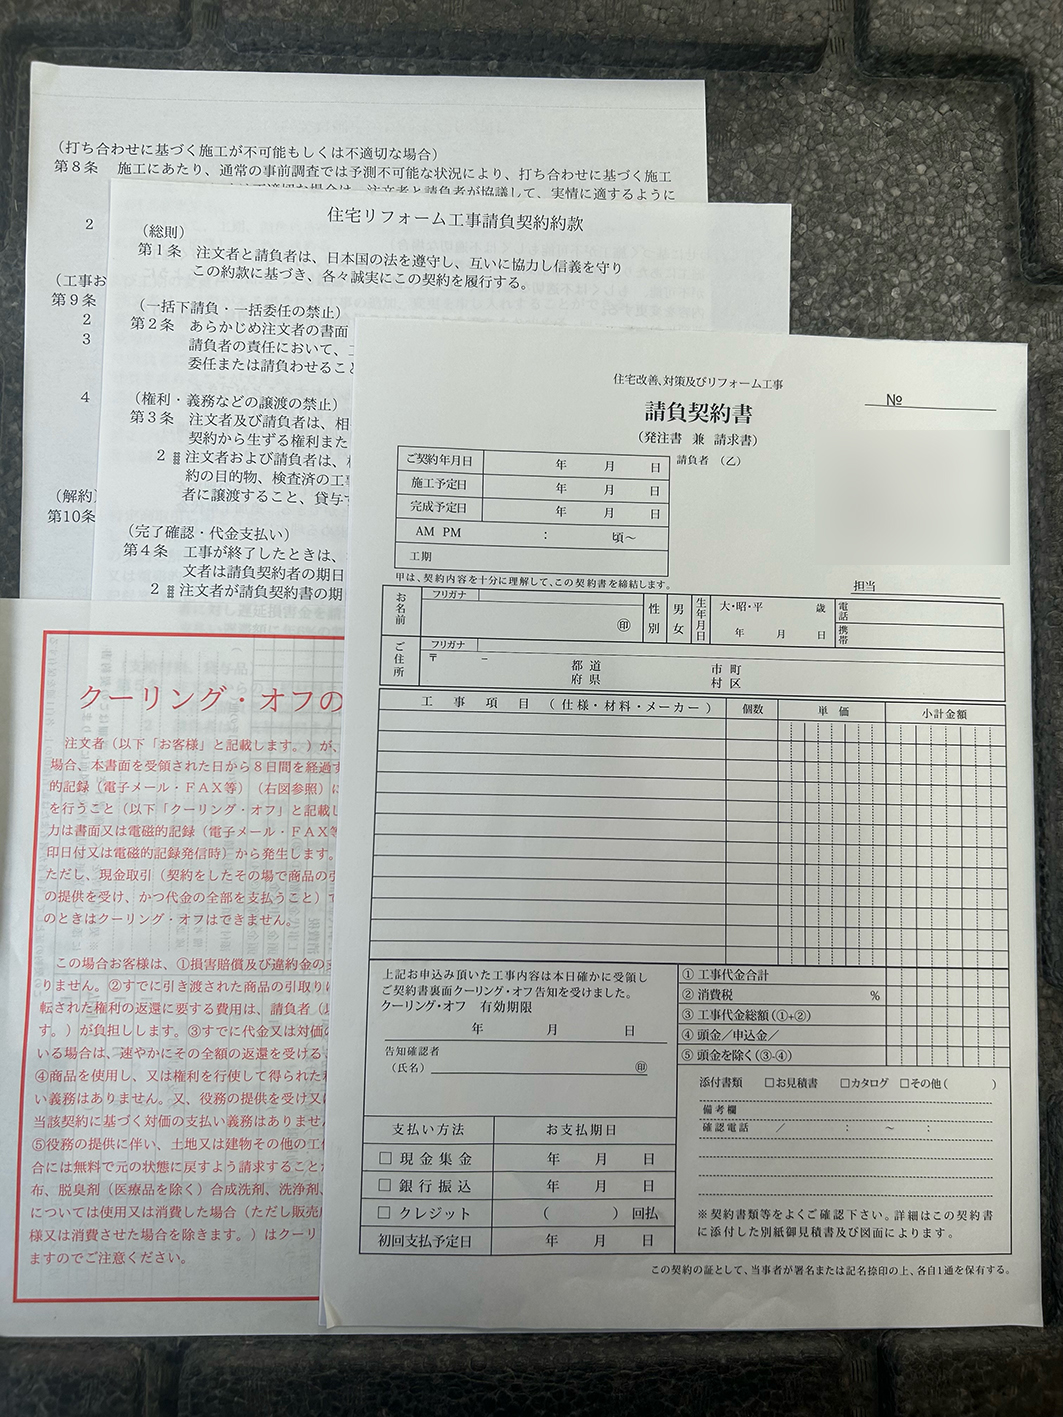 (打ち合わせに基づく施工が不可能もしくは不適切な場合)
第8条 施工にあたり、通常の事前調査では予測不可能な状況により、打ち合わせに基づく施工
注文者と請負者が協議して、実情に適するように
2
(工事お
第9条
2
3
4
(解約)
第10条
住宅リフォーム工事請負契約約款
(総則)
第1条 注文者と請負者は、日本国の法を遵守し、互いに協力し信義を守り
この約款に基づき、各々誠実にこの契約を履行する。
(一括下請負・一括委任の禁止)
第2条 あらかじめ注文者の書面
請負者の責任において、
委任または請負わせること
(権利・義務などの譲渡の禁止)
第3条 注文者及び請負者は、相
契約から生ずる権利また
2 注文者および請負者は、
約の目的物、検査済の工
者に譲渡すること、貸与
(完了確認・代金支払い)
第4条 工事が終了したときは、
文者は請負契約者の期日
2 注文者が請負契約書の期
クーリング・オフの
注文者(以下「お客様」と記載します。)が、
場合、本書面を受領された日から8日間を経過す
的記録(電子メール・FAX等)(右図参照)に
を行うこと(以下「クーリング・オフ」と記載し
力は書面又は電磁的記録(電子メール・FAX等
印日付又は電磁的記録発信時)から発生します。
ただし、現金取引(契約をしたその場で商品の引
の提供を受け、かつ代金の全部を支払うこと)で
のときはクーリング・オフはできません。
この場合お客様は、①損害賠償及び違約金の支
りません。②すでに引き渡された商品の引取りに
転された権利の返還に要する費用は、請負者(
す。)が負担しします。③すでに代金又は対価の
いる場合は、速やかにその全額の返還を受ける
④商品を使用し、又は権利を行使して得られた利
い義務はありません。又、役務の提供を受け又は
当該契約に基づく対価の支払い義務はありません
⑤役務の提供に伴い、土地又は建物その他の工作
合には無料で元の状態に戻すよう請求することが
布、脱臭剤(医療品を除く)合成洗剤、洗浄剤、
については使用又は消費した場合(ただし販売
様又は消費させた場合を除きます。)はクーリ
ますのでご注意ください。
住宅改善、対策及びリフォーム工事
請負契約書
(発注書 兼 請求書)
№
請負者 (乙)
ご契約年月日 年 月 日
施工予定日 年 月 日
完成予定日 年 月 日
AM PM : 頃～
工期
甲は、契約内容を十分に理解して、この契約書を締結します。
担当
お名前 フリガナ ㊞ 性別 男 女 生年月日 大・昭・平 歳 年 月 日 電話 携帯
ご住所 フリガナ 〒 − 都道府県 市町村区
工事項目(仕様・材料・メーカー) 個数 単価 小計金額
上記お申込み頂いた工事内容は本日確かに受領し
ご契約書裏面クーリング・オフ告知を受けました。
クーリング・オフ 有効期限
年 月 日
告知確認者
(氏名) ㊞
① 工事代金合計
② 消費税 %
③ 工事代金総額(①+②)
④ 頭金/申込金/
⑤ 頭金を除く(③-④)
添付書類 □お見積書 □カタログ □その他( )
備考欄
確認電話 / : ～ :
支払い方法 お支払期日
□ 現金集金 年 月 日
□ 銀行振込 年 月 日
□ クレジット ( ) 回払
初回支払予定日 年 月 日
※契約書類等をよくご確認下さい。詳細はこの契約書
に添付した別紙御見積書及び図面によります。
この契約の証として、当事者が署名または記名捺印の上、各自1通を保有する。